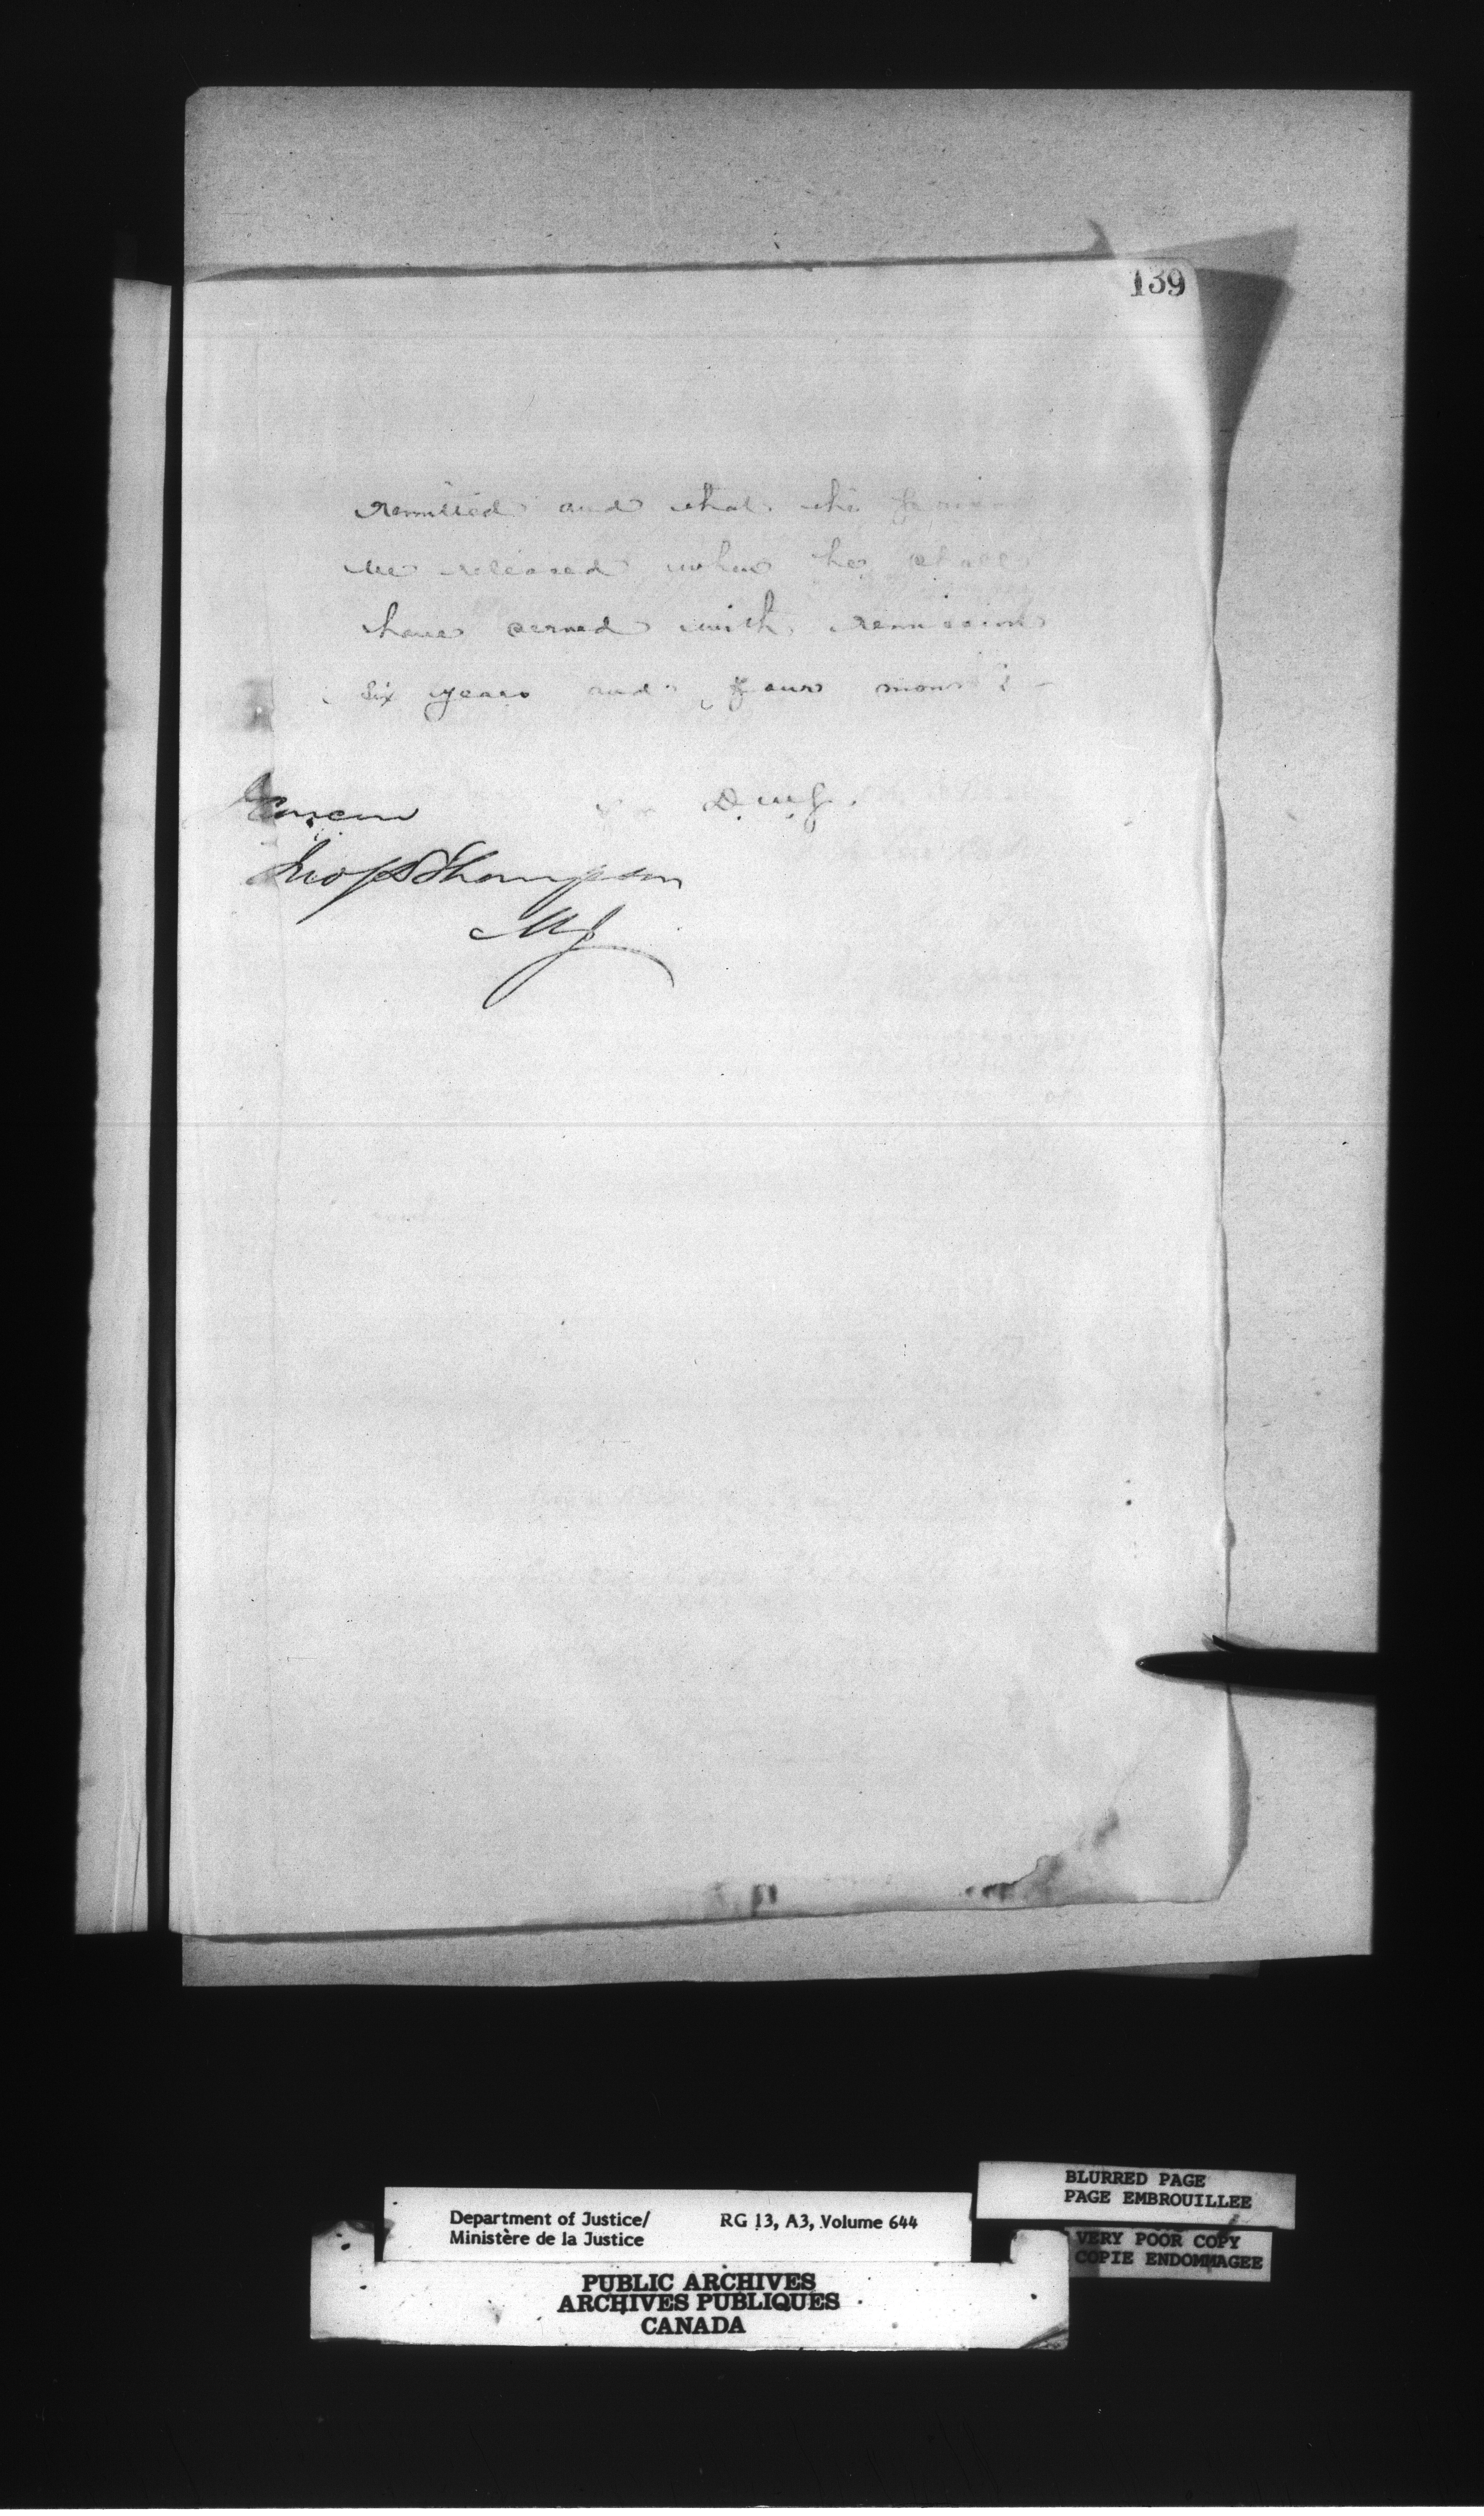 139
remitted and that the
be released when he shall
have served with remission
six years and four months
D.M.J.
I Concur
Jno S D Thompson
MJ
BLURRED PAGE
PAGE EMBROUILLEE
Department of Justice/ RG 13, A3, Volume 644
Ministère de la Justice
VERY POOR COPY
COPIE ENDOMMAGEE
PUBLIC ARCHIVES
ARCHIVES PUBLIQUES
CANADA